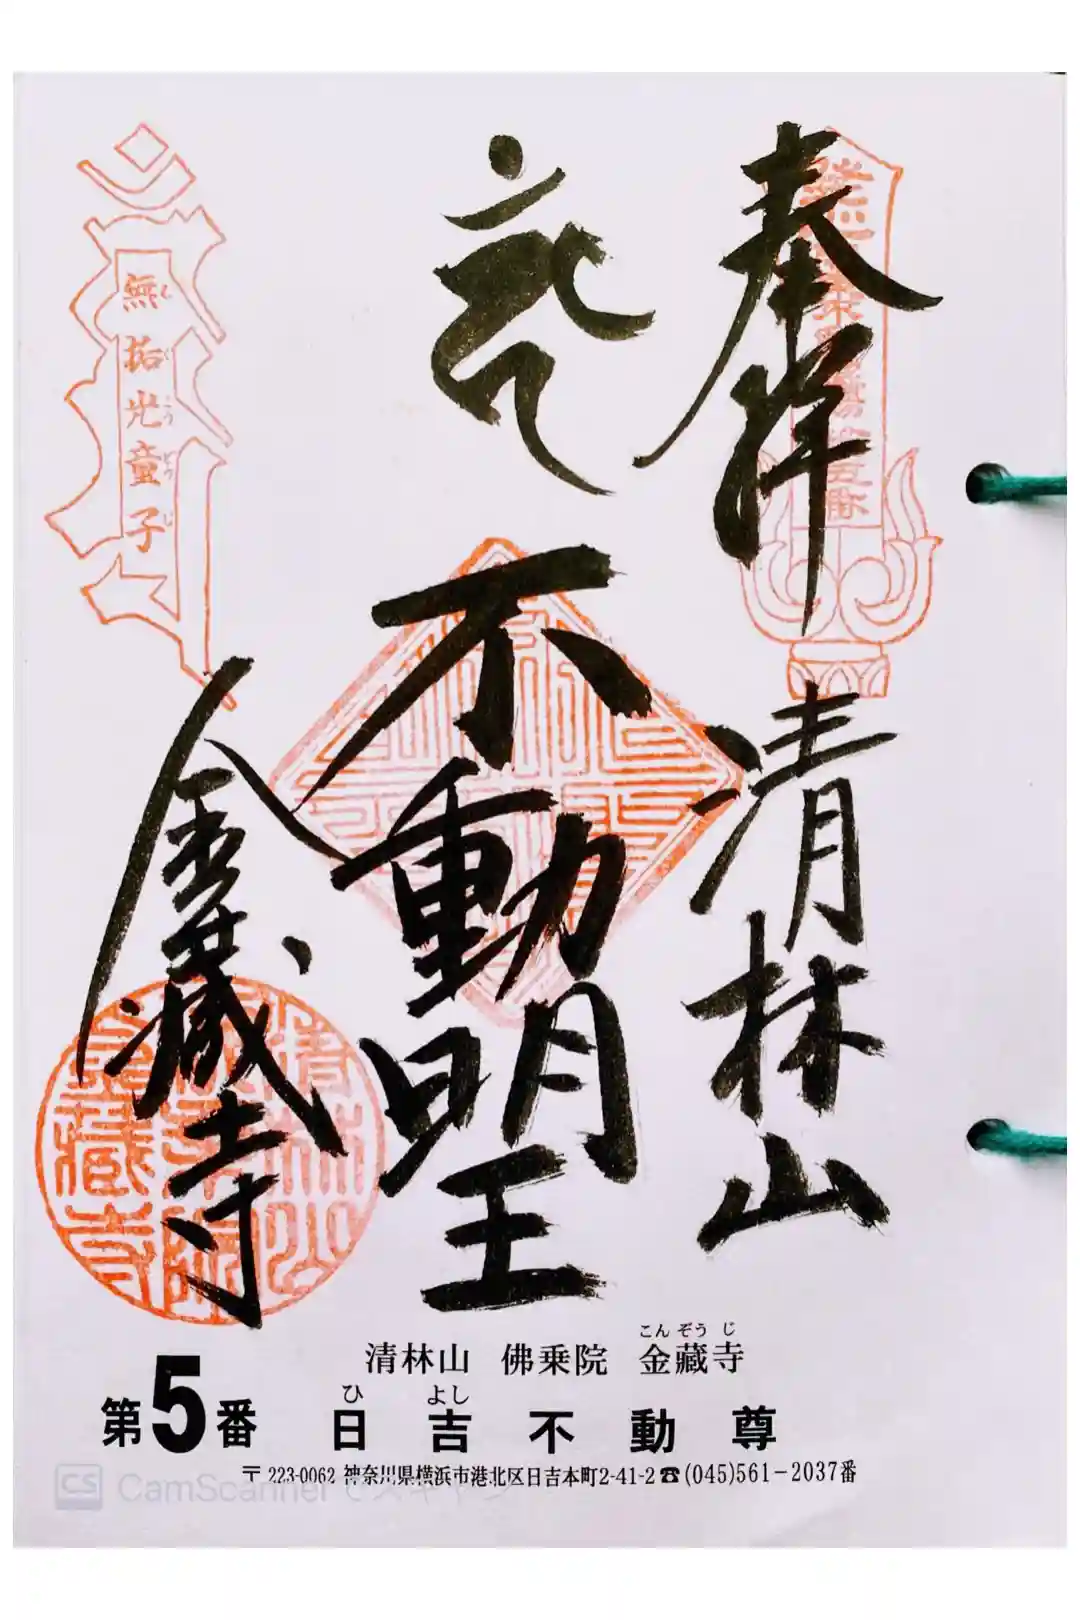 奉拝
清林山
不動明王
金藏寺
無垢光童子
む く こう どう じ
清林山 佛乗院 金藏寺
こん ぞう じ
第5番 日吉不動尊
ひ よし
〒223-0062 神奈川県横浜市港北区日吉本町2-41-2 ☎(045)561-2037番
CS CamScanner でスキャン